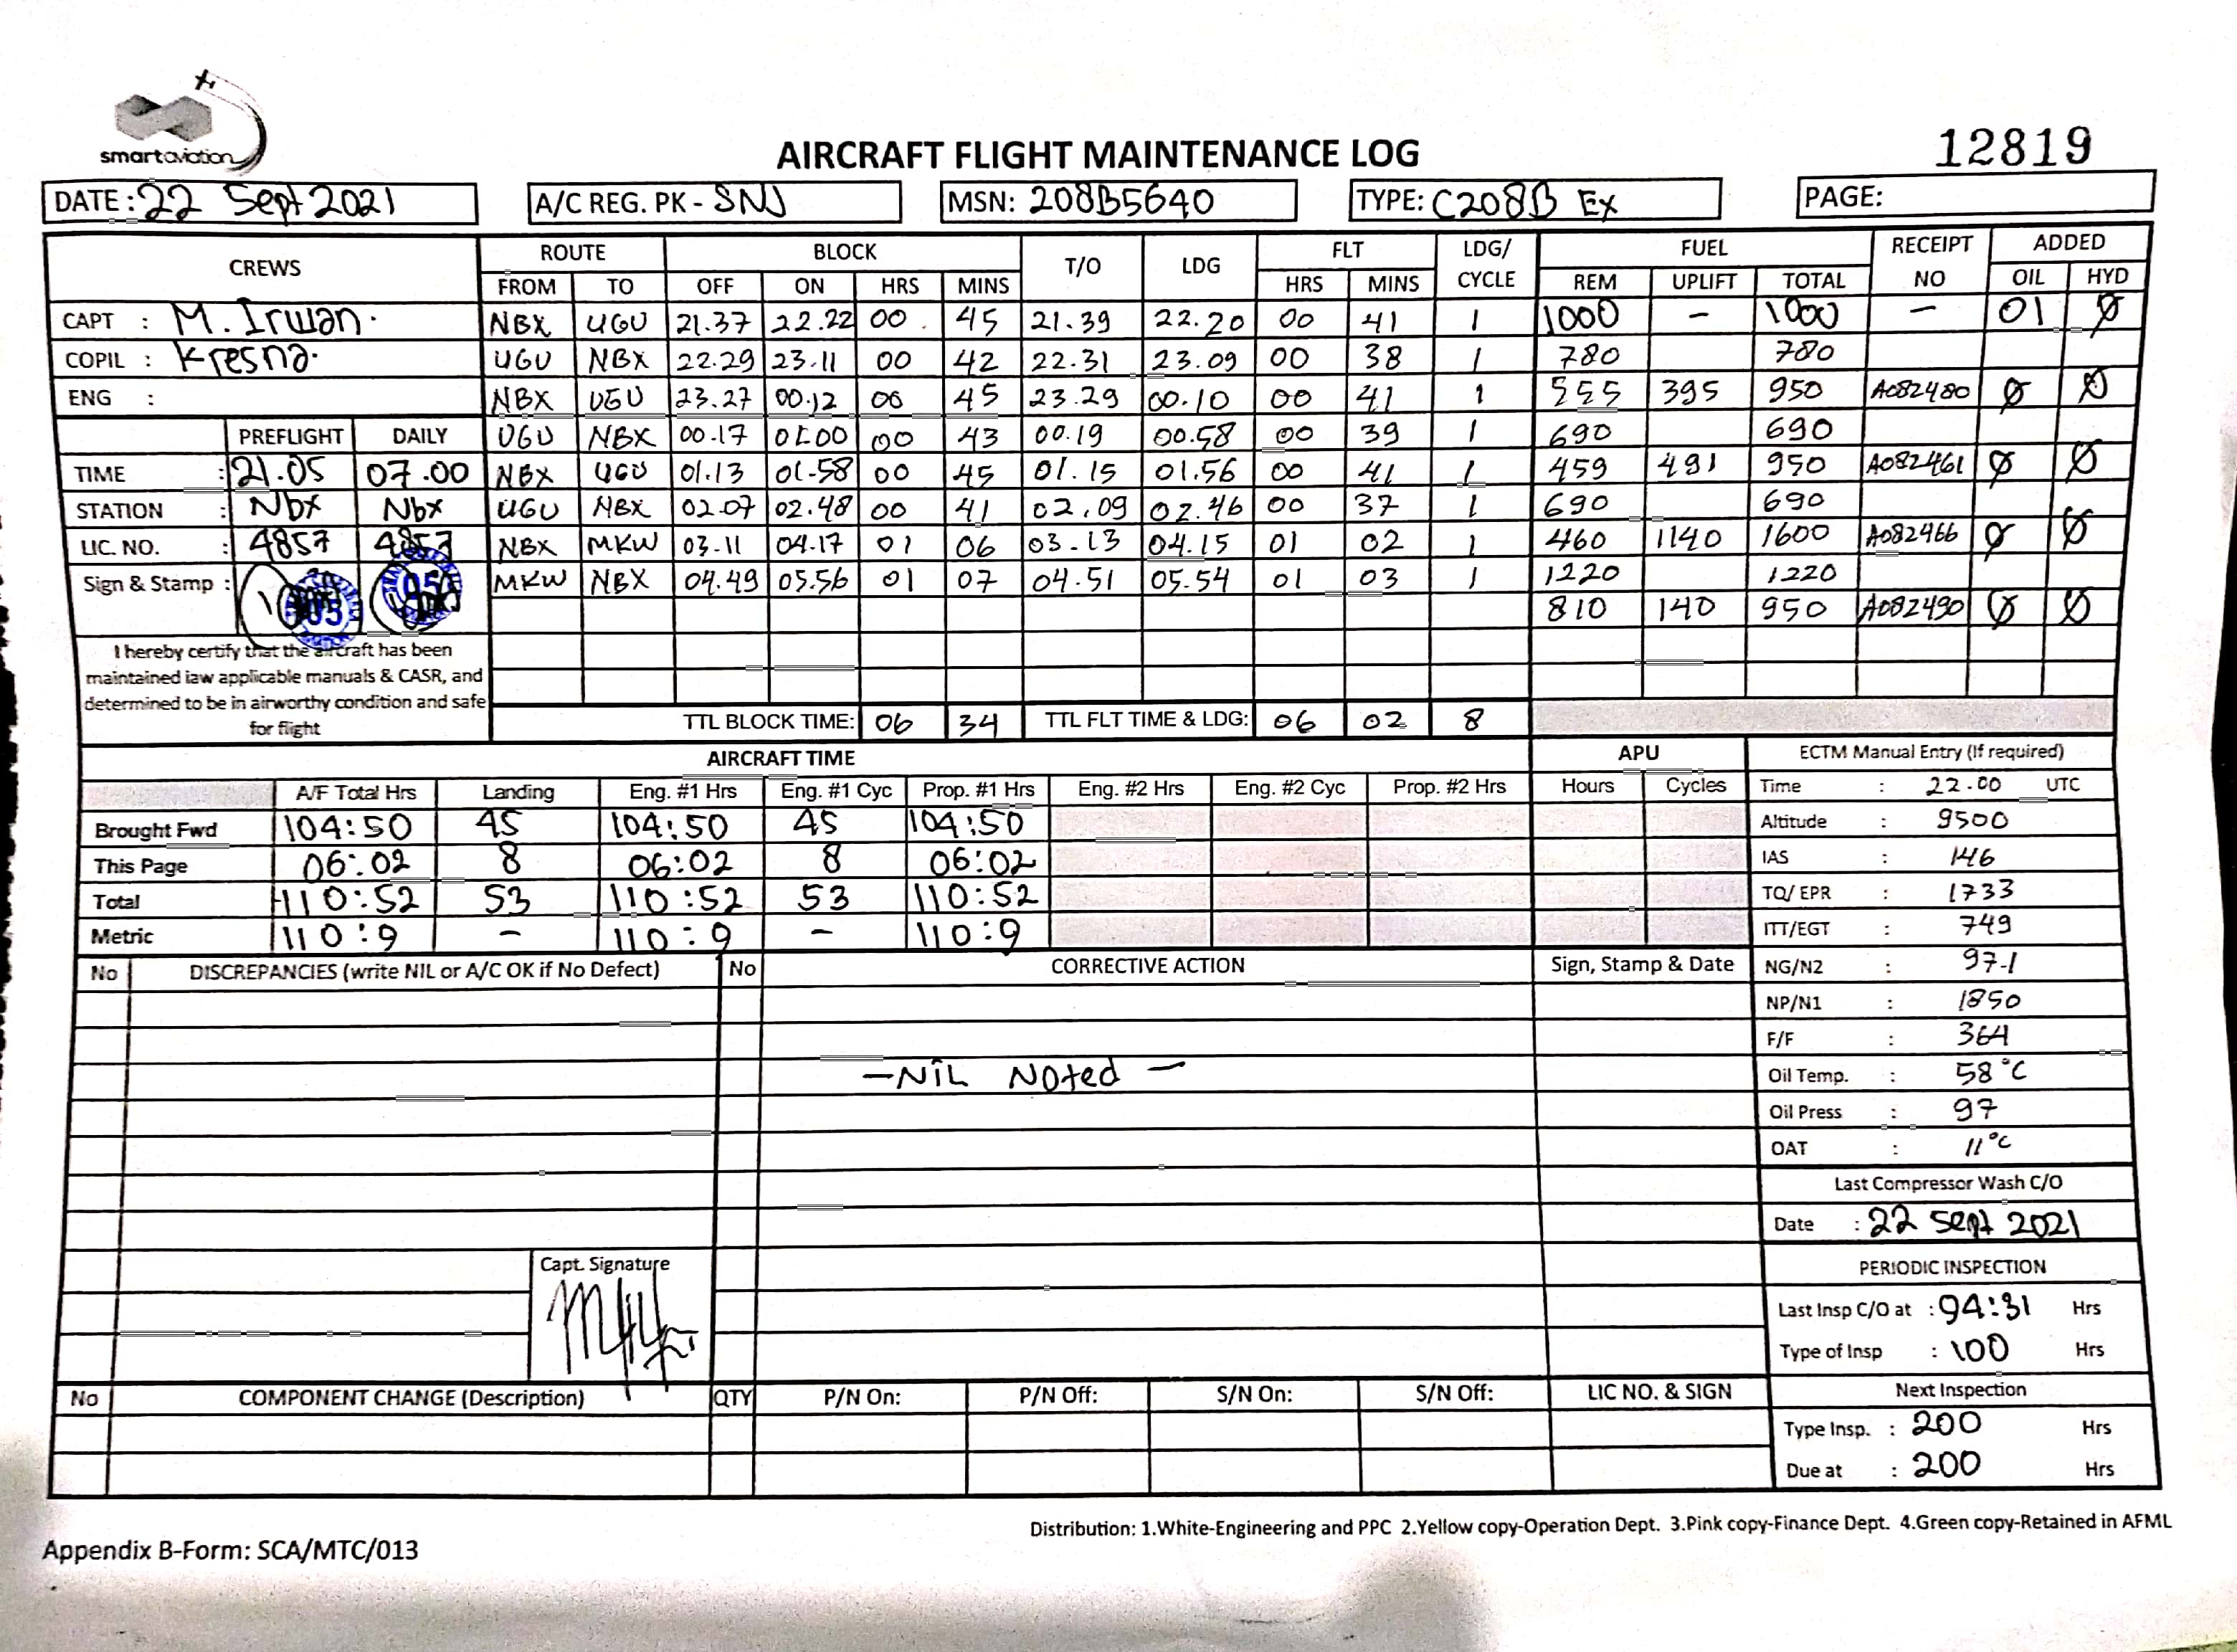 smartaviation
AIRCRAFT FLIGHT MAINTENANCE LOG
12819
DATE: 22 Sept 2021 A/C REG. PK - SNJ MSN: 208B5640 TYPE: C208B Ex PAGE:
CREWS ROUTE BLOCK T/O LDG FLT LDG/ CYCLE FUEL RECEIPT NO ADDED
FROM TO OFF ON HRS MINS HRS MINS REM UPLIFT TOTAL OIL HYD
CAPT : M. Irwan. NBX UGU 21.37 22.22 00 45 21.39 22.20 00 41 1 1000 - 1000 - 01 Ø
COPIL : Kresna. UGU NBX 22.29 23.11 00 42 22.31 23.09 00 38 1 780 780
ENG : NBX UGU 23.27 00.12 00 45 23.29 00.10 00 41 1 555 395 950 A082480 Ø Ø
PREFLIGHT DAILY UGU NBX 00.17 01.00 00 43 00.19 00.58 00 39 1 690 690
TIME : 21.05 07.00 NBX UGU 01.13 01.58 00 45 01.15 01.56 00 41 1 459 491 950 A082461 Ø Ø
STATION : Nbx Nbx UGU NBX 02.07 02.48 00 41 02.09 02.46 00 37 1 690 690
LIC. NO. : 4857 4857 NBX MKW 03.11 04.17 01 06 03.13 04.15 01 02 1 460 1140 1600 A082466 Ø Ø
Sign & Stamp : MKW NBX 04.49 05.56 01 07 04.51 05.54 01 03 1 1220 1220
810 140 950 A082490 Ø Ø
I hereby certify that the aircraft has been
maintained iaw applicable manuals & CASR, and
determined to be in airworthy condition and safe
for flight
TTL BLOCK TIME: 06 34 TTL FLT TIME & LDG: 06 02 8
AIRCRAFT TIME APU
A/F Total Hrs Landing Eng. #1 Hrs Eng. #1 Cyc Prop. #1 Hrs Eng. #2 Hrs Eng. #2 Cyc Prop. #2 Hrs Hours Cycles
Brought Fwd 104:50 45 104:50 45 104:50
This Page 06:02 8 06:02 8 06:02
Total 110:52 53 110:52 53 110:52
Metric 110:9 - 110:9 - 110:9
ECTM Manual Entry (If required)
Time : 22.00 UTC
Altitude : 9500
IAS : 146
TQ/ EPR : 1733
ITT/EGT : 749
NG/N2 : 97.1
NP/N1 : 1850
F/F : 364
Oil Temp. : 58°C
Oil Press : 97
OAT : 11°C
Last Compressor Wash C/O
Date : 22 Sept 2021
PERIODIC INSPECTION
Last Insp C/O at : 94:31 Hrs
Type of Insp : 100 Hrs
Next Inspection
Type Insp. : 200 Hrs
Due at : 200 Hrs
No DISCREPANCIES (write NIL or A/C OK if No Defect) No CORRECTIVE ACTION Sign, Stamp & Date
- NIL Noted -
Capt. Signature
No COMPONENT CHANGE (Description) QTY P/N On: P/N Off: S/N On: S/N Off: LIC NO. & SIGN
Distribution: 1.White-Engineering and PPC 2.Yellow copy-Operation Dept. 3.Pink copy-Finance Dept. 4.Green copy-Retained in AFML
Appendix B-Form: SCA/MTC/013